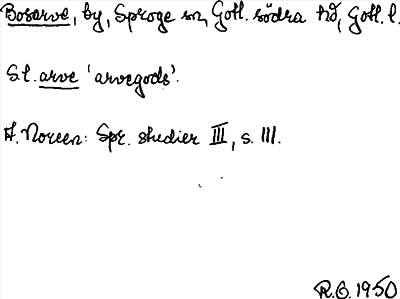 Bosarve, by, Sproge sn, Gotl. södra hd, Gotl. l.
S.l. arve 'arvegods'.
A. Noreen: Spr. studier III, s. 111.
R.O. 1950